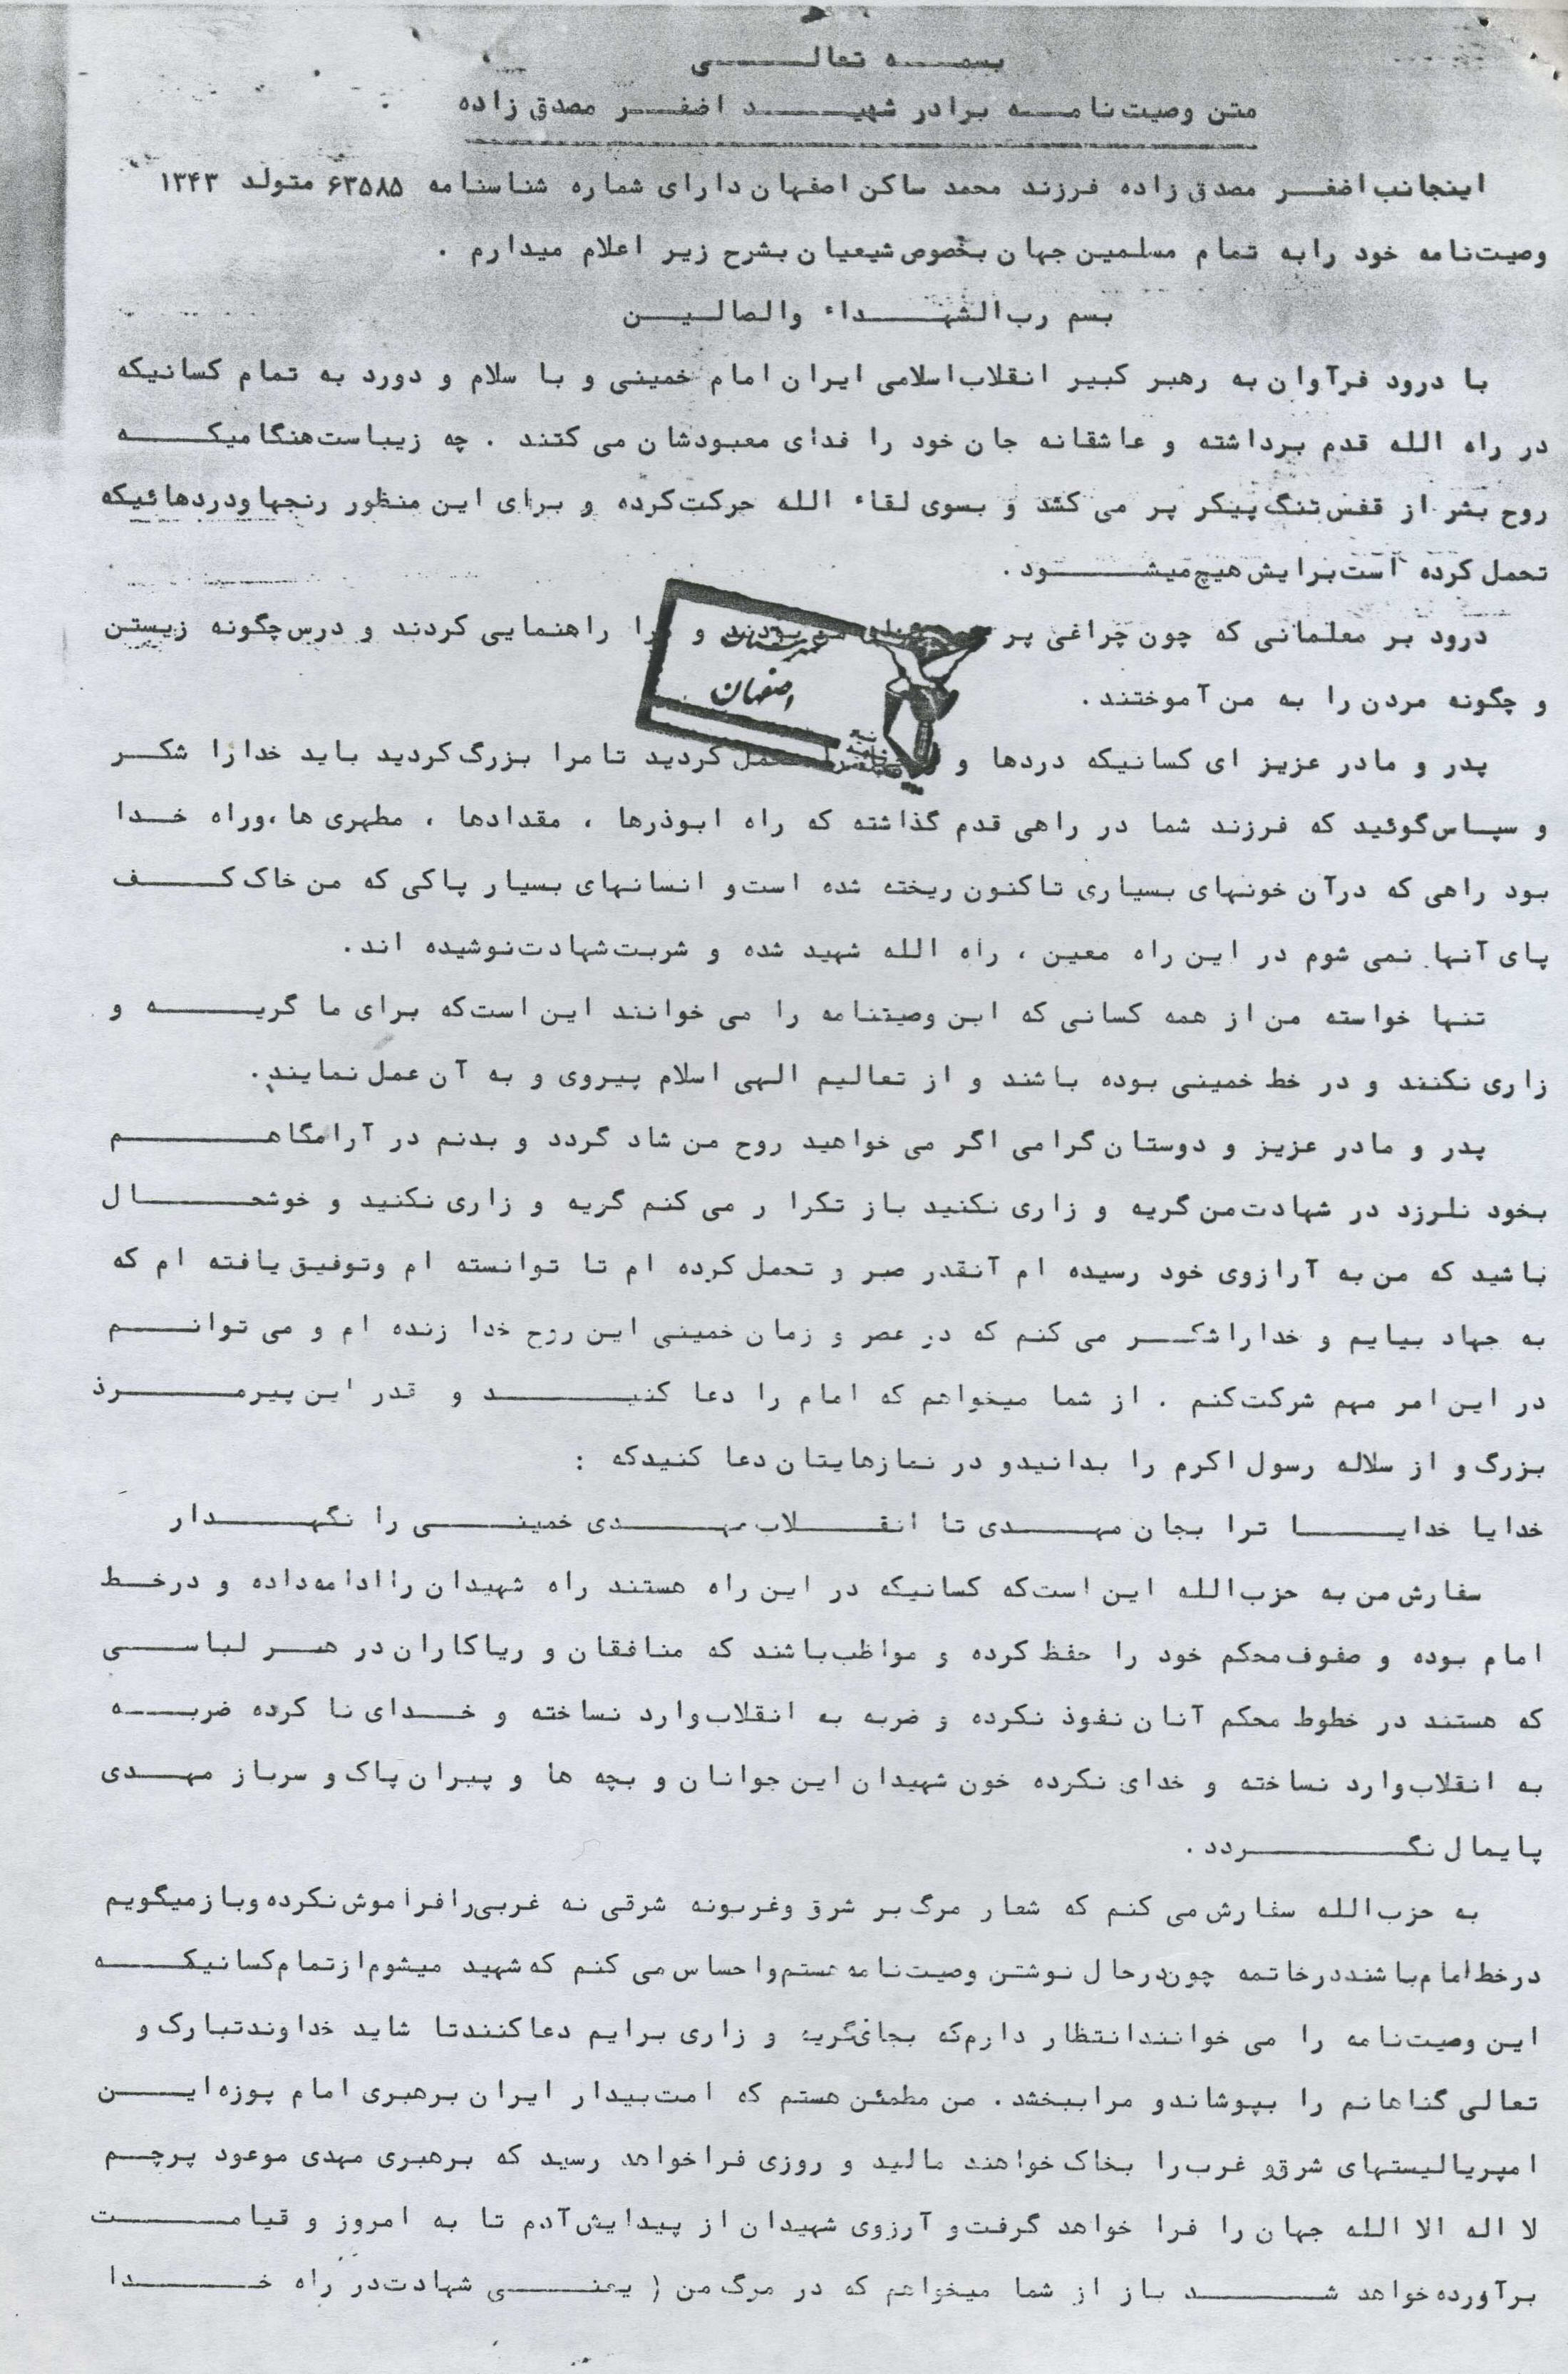 بسمه تعالی
متن وصیت‌نامه برادر شهید اضفر مصدق زاده
اینجانب اضفر مصدق زاده فرزند محمد ساکن اصفهان دارای شماره شناسنامه ۶۳۵۸۵ متولد ۱۳۴۳
وصیت‌نامه خود رابه تمام مسلمین جهان بخصوص شیعیان بشرح زیر اعلام میدارم .
بسم رب الشهداء والصالین
با درود فرآوان به رهبر کبیر انقلاب اسلامی ایران امام خمینی و با سلام و دورد به تمام کسانیکه
در راه الله قدم برداشته و عاشقانه جان خود را فدای معبودشان می کتند . چه زیباست هنگامیکه
روح بشر از قفس تنگ پیکر پر می کشد و بسوی لقاء الله حرکت کرده و برای این منظور رنجها ودردهائیکه
تحمل کرده است برایش هیچ میشود .
درود بر معلمانی که چون چراغی پر من بودند و را راهنمایی کردند و درس چگونه زیستن
و چگونه مردن را به من آموختند .
شهرستان
اصفهان
پدر و مادر عزیز ای کسانیکه دردها و تحمل کردید تا مرا بزرگ کردید باید خدارا شکر
و سپاس گوئید که فرزند شما در راهی قدم گذاشته که راه ابوذرها ، مقدادها ، مطهری ها ،وراه خدا
بود راهی که درآن خونهای بسیاری تاکنون ریخته شده است و انسانهای بسیار پاکی که من خاک کف
پای آنها نمی شوم در این راه معین ، راه الله شهید شده و شربت شهادت نوشیده اند .
تنها خواسته من از همه کسانی که این وصیتنامه را می خوانند این است که برای ما گریه و
زاری نکنند و در خط خمینی بوده باشند و از تعالیم الهی اسلام پیروی و به آن عمل نمایند .
پدر و مادر عزیز و دوستان گرامی اگر می خواهید روح من شاد گردد و بدنم در آرامگاهم
بخود نلرزد در شهادت من گریه و زاری نکنید باز تکرا ر می کنم گریه و زاری نکنید و خوشحال
باشید که من به آرازوی خود رسیده ام آنقدر صبر و تحمل کرده ام تا توانسته ام وتوفیق یافته ام که
به جهاد بیایم و خداراشکر می کنم که در عصر و زمان خمینی این روح خدا زنده ام و می توانم
در این امر مهم شرکت کنم . از شما میخواهم که امام را دعا کنید و قدر این پیرمرد
بزرگ و از سلاله رسول اکرم را بدانیدو در نمازهایتان دعا کنیدکه :
خدایا خدایا ترا بجان مهدی تا انقلاب مهدی خمینی را نگهدار
سفارش من به حزب الله این است که کسانیکه در این راه هستند راه شهیدان را ادامه داده و درخط
امام بوده و صفوف محکم خود را حفظ کرده و مواظب باشند که منافقان و ریاکاران در هر لباسی
که هستند در خطوط محکم آنان نفوذ نکرده و ضربه به انقلاب وارد نساخته و خدای نا کرده ضربه
به انقلاب وارد نساخته و خدای نکرده خون شهیدان این جوانان و بچه ها و پیران پاک و سرباز مهدی
پایمال نگردد .
به حزب الله سفارش می کنم که شعار مرگ بر شرق وغربونه شرقی نه غربی را فراموش نکرده وباز میگویم
درخط امام باشنددرخاتمه چون درحال نوشتن وصیت‌نامه هستم واحساس می کنم که شهید میشوم ازتمام کسانیکه
این وصیت‌نامه را می خوانندانتظار دارم که بجای گریه و زاری برایم دعاکنندتا شاید خداوندتبارک و
تعالی گناهانم را بپوشاندو مراببخشد . من مطمئن هستم که امت بیدار ایران برهبری امام پوزه این
امپریالیستهای شرق و غرب را بخاک خواهند مالید و روزی فراخواهد رسید که برهبری مهدی موعود پرچم
لا اله الا الله جهان را فرا خواهد گرفت و آرزوی شهیدان از پیدایش آدم تا به امروز و قیامت
برآورده خواهد شد باز از شما میخواهم که در مرگ من ( یعنی شهادت در راه خدا